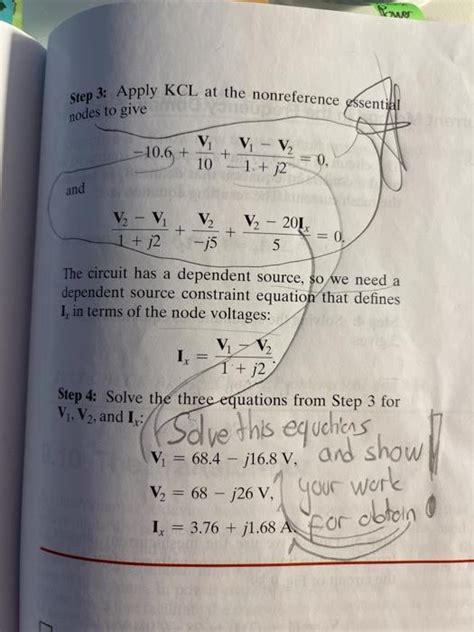 Power
Step 3: Apply KCL at the nonreference essential
nodes to give
−10.6 + V₁/10 + (V₁ − V₂)/(1 + j2) = 0,
and
(V₂ − V₁)/(1 + j2) + V₂/(−j5) + (V₂ − 20Iₓ)/5 = 0.
The circuit has a dependent source, so we need a
dependent source constraint equation that defines
Iₓ in terms of the node voltages:
Iₓ = (V₁ − V₂)/(1 + j2).
Step 4: Solve the three equations from Step 3 for
V₁, V₂, and Iₓ:
Solve this equctions
V₁ = 68.4 − j16.8 V, and show
V₂ = 68 − j26 V, your work
Iₓ = 3.76 + j1.68 A. for obtain!